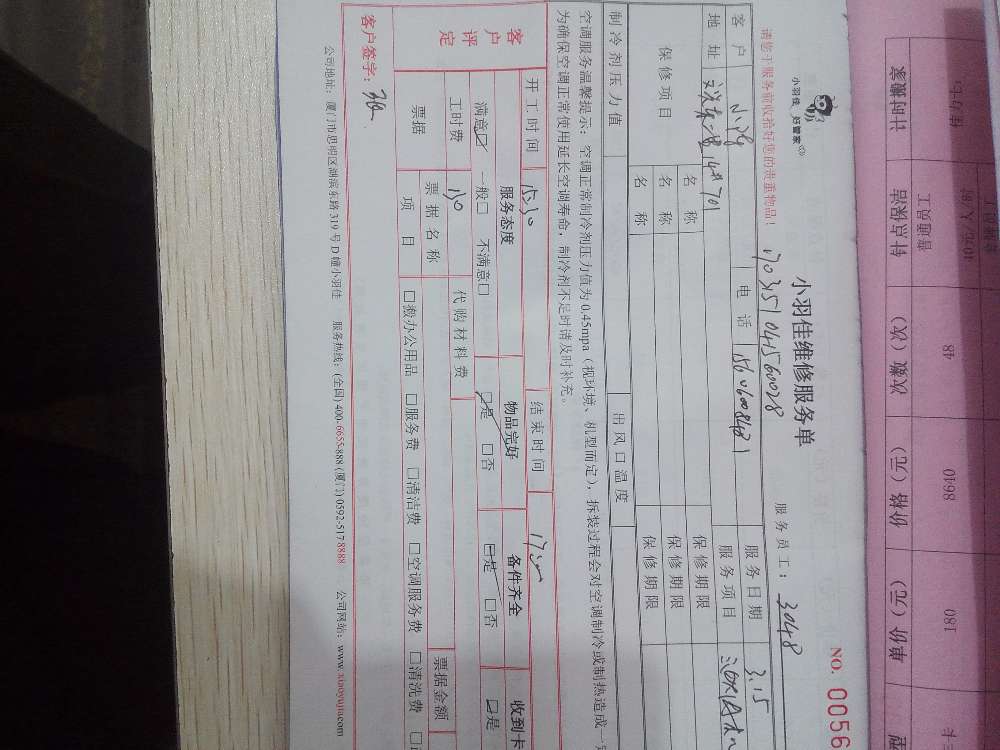 计时搬家
钟点保洁 次数（次） 价格（元） 单价（元）
普通员工 48 8640 180
小羽佳 好管家
小羽佳维修服务单
服务员工：3048
NO. 0056
请您于服务前收拾好您的贵重物品！
客户 电话 服务日期 3.15
地址 14# 701 服务项目
保修项目 名称 保修期限
名称 保修期限
名称 保修期限
制冷剂压力值 出风口温度
空调服务温馨提示：空调正常制冷剂压力值为0.45mpa（视环境、机型而定），拆装过程会对空调制冷或制热造成一定
为确保空调正常使用延长空调寿命，制冷剂不足时请及时补充。
开工时间 15:30 结束时间 17:00
客户评定 服务态度 物品完好 备件齐全 收到卡
满意☑ 一般□ 不满意□ ☑是 □否 ☑是 □否 □是
工时费 130 代购材料费 票据金额
票据 票据名称
项目 □搬办公用品 □服务费 □清洁费 □空调服务费 □清洗费
客户签字：
公司地址：厦门市思明区湖滨东路319号D幢小羽佳 服务热线：(全国) 400-6655-888 (厦门) 0592-517 8888 公司网站：www.xiaoyujia.com